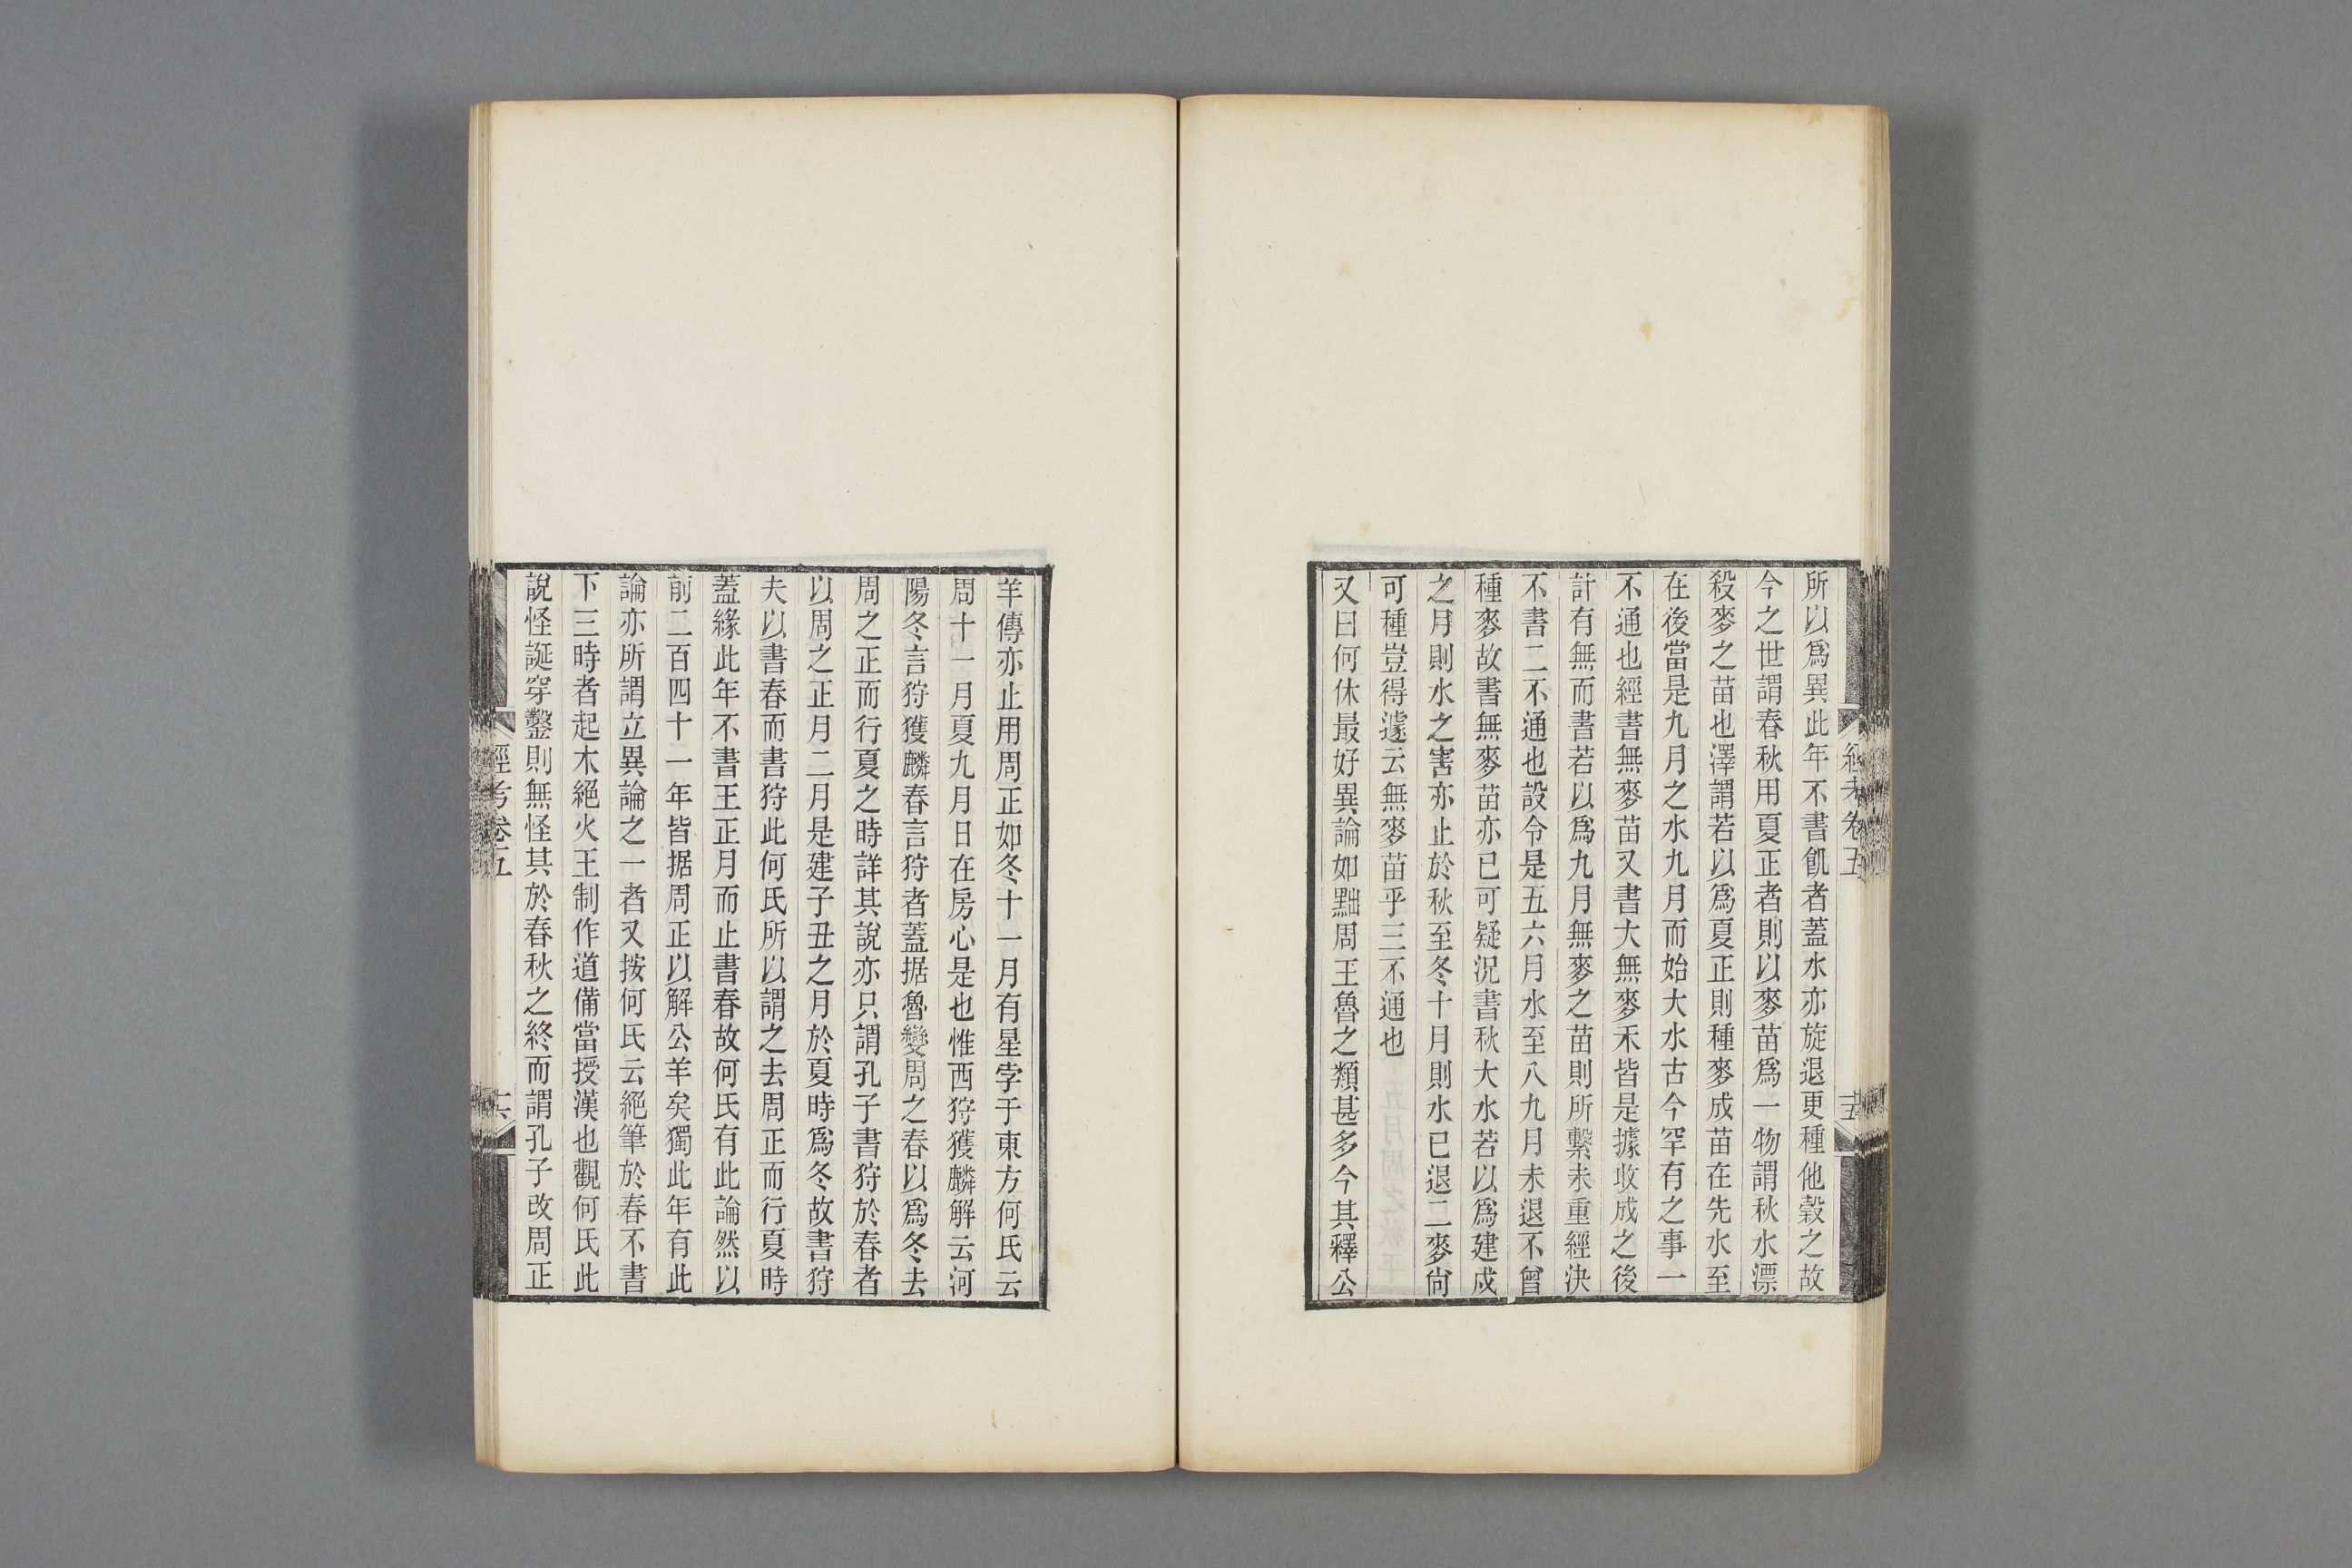 所以爲異此年不書飢者蓋水亦旋退更種他穀之故
今之世謂春秋用夏正者則以麥苗爲一物謂秋水漂
殺麥之苗也澤謂若以爲夏正則種麥成苗在先水至
在後當是九月之水九月而始大水古今罕有之事一
不通也經書無麥苗又書大無麥禾皆是據收成之後
計有無而書若以爲九月無麥之苗則所繫未重經決
不書二不通也設令是五六月水至八九月未退不曾
種麥故書無麥苗亦已可疑況書秋大水若以爲建戌
之月則水之害亦止於秋至冬十月則水已退二麥尙
可種豈得遽云無麥苗乎三不通也
又曰何休最好異論如黜周王魯之類甚多今其釋公
經考卷五
十五
羊傳亦止用周正如冬十一月有星孛于東方何氏云
周十一月夏九月日在房心是也惟西狩獲麟解云河
陽冬言狩獲麟春言狩者蓋据魯變周之春以爲冬去
周之正而行夏之時詳其說亦只謂孔子書狩於春者
以周之正月二月是建子丑之月於夏時爲冬故書狩
夫以書春而書狩此何氏所以謂之去周正而行夏時
蓋緣此年不書王正月而止書春故何氏有此論然以
前二百四十一年皆据周正以解公羊矣獨此年有此
論亦所謂立異論之一者又按何氏云絕筆於春不書
下三時者起木絕火王制作道備當授漢也觀何氏此
說怪誕穿鑿則無怪其於春秋之終而謂孔子改周正
經考卷五